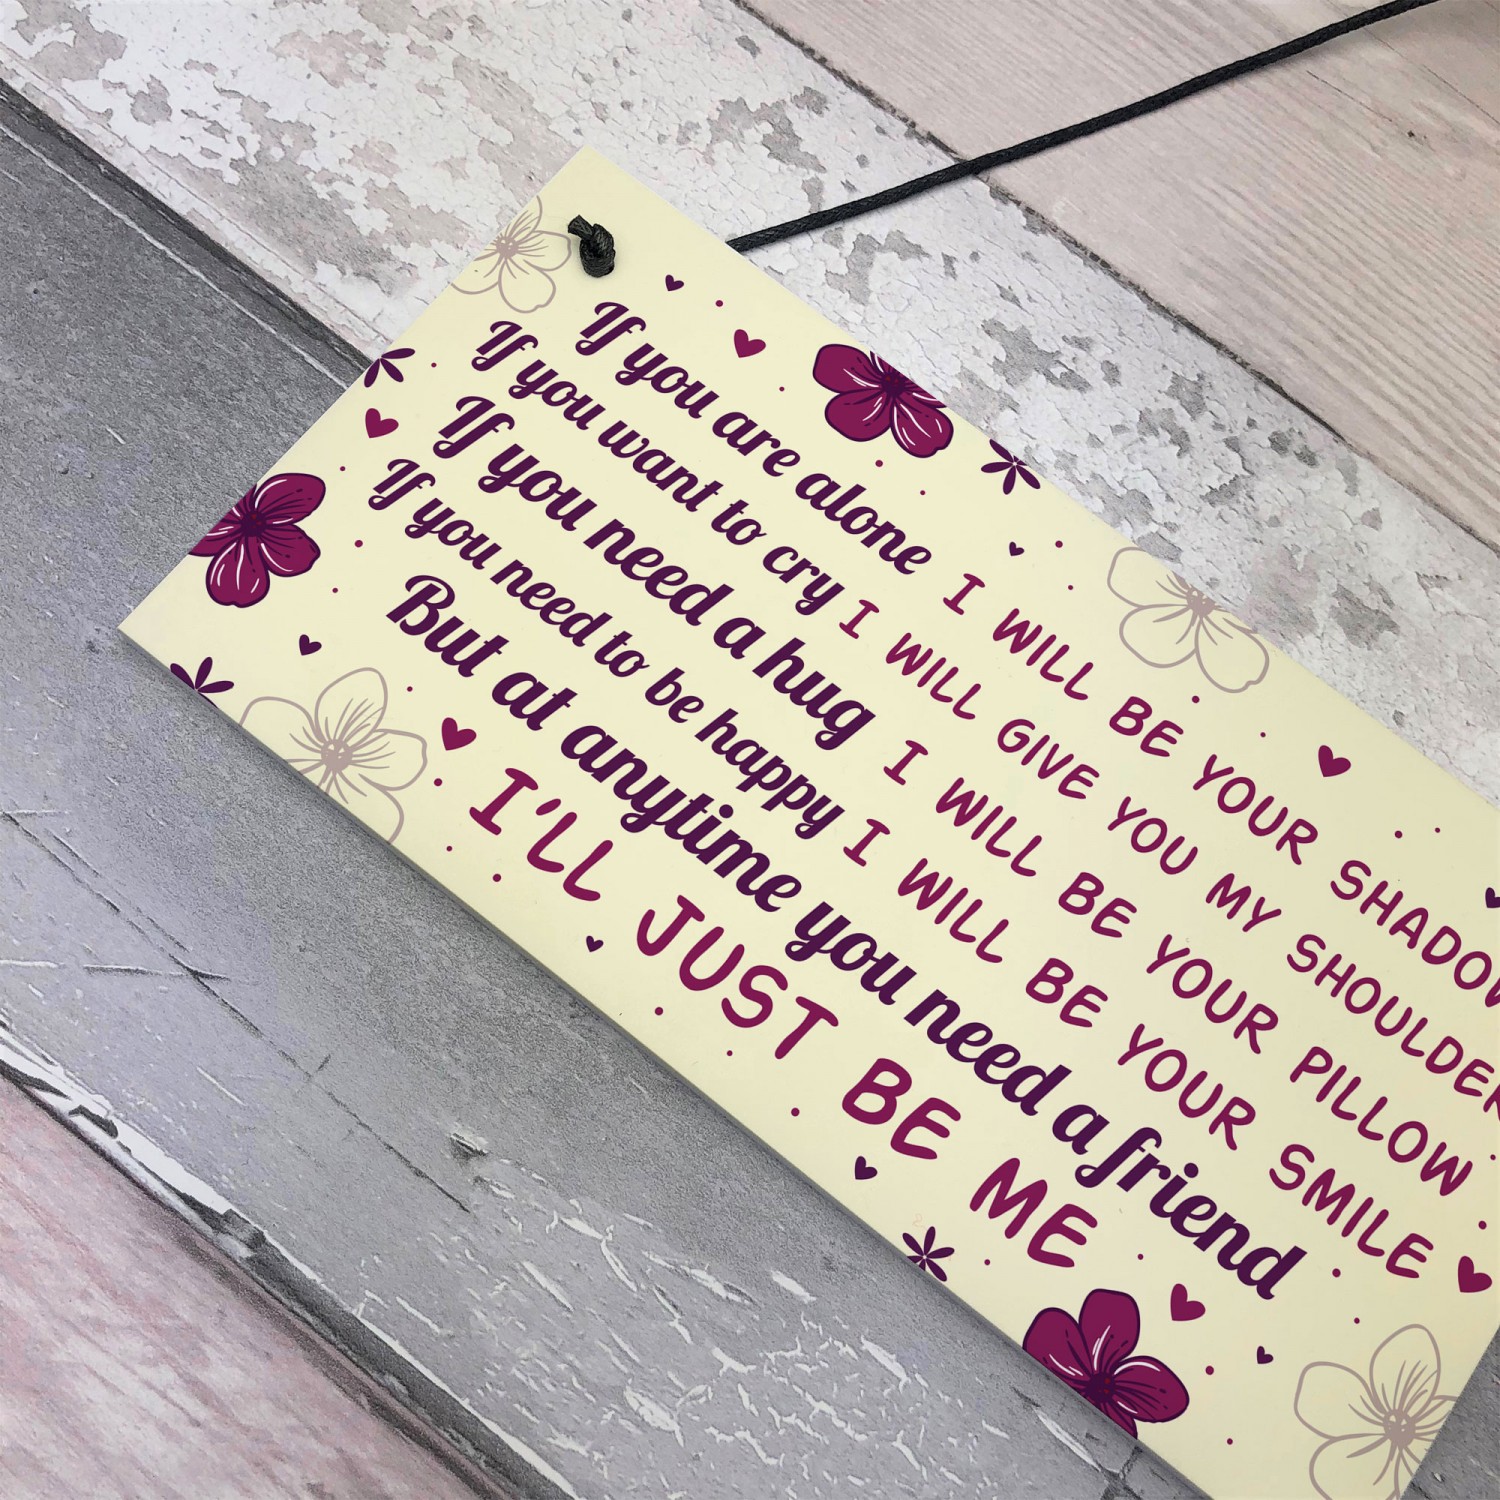 If you are alone I WILL BE YOUR SHADOW
If you want to cry I WILL GIVE YOU MY SHOULDER
If you need a hug I WILL BE YOUR PILLOW
If you need to be happy I WILL BE YOUR SMILE
But at anytime you need a friend
I'LL JUST BE ME